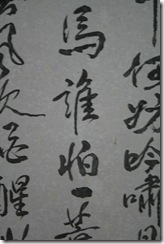 何妨吟嘯
馬誰怕一蓑
風吹酒醒